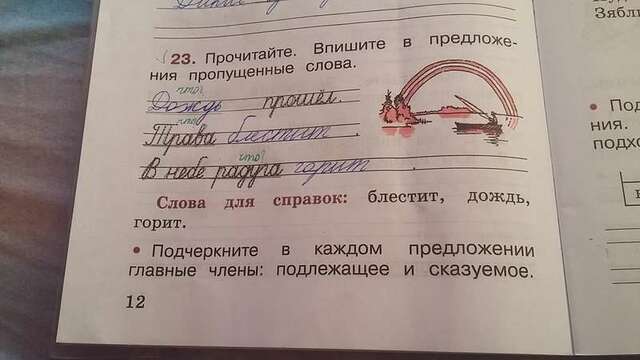 23. Прочитайте. Впишите в предложе-
ния пропущенные слова.
что?
Дождь прошёл.
что?
Трава блестит.
что?
В небе радуга горит.
Слова для справок: блестит, дождь,
горит.
• Подчеркните в каждом предложении
главные члены: подлежащее и сказуемое.
12
• Под
ния.
подхо
Зябли